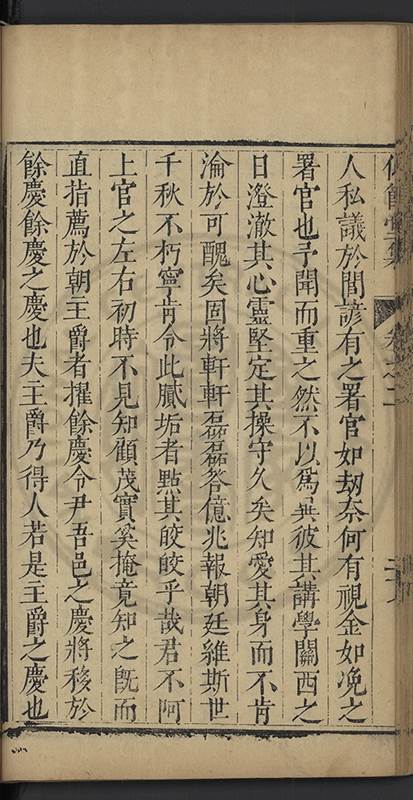 人私議於間諺有之署官如刼奈何有視金如浼之
署官也予聞而重之然不以為異彼其講學關西之
日澄澈其心靈堅定其操守久矣知愛其身而不肯
淪於可醜矣固將軒軒磊磊答億兆報朝廷維斯世
千秋不朽寧肯令此膩垢者點其皎皎乎哉君不阿
上官之左右初時不見知顧茂實奚掩竟知之旣而
直指薦於朝主爵者擢餘慶令尹吾邑之慶將移於
餘慶餘慶之慶也夫主爵乃得人若是主爵之慶也